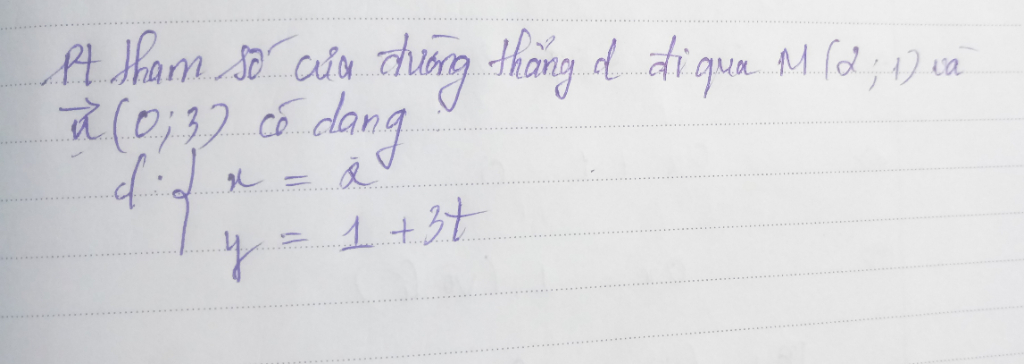 Pt tham số của đường thẳng d đi qua M(2;1) và
u⃗(0;3) có dạng
d: { x = 2
y = 1 + 3t